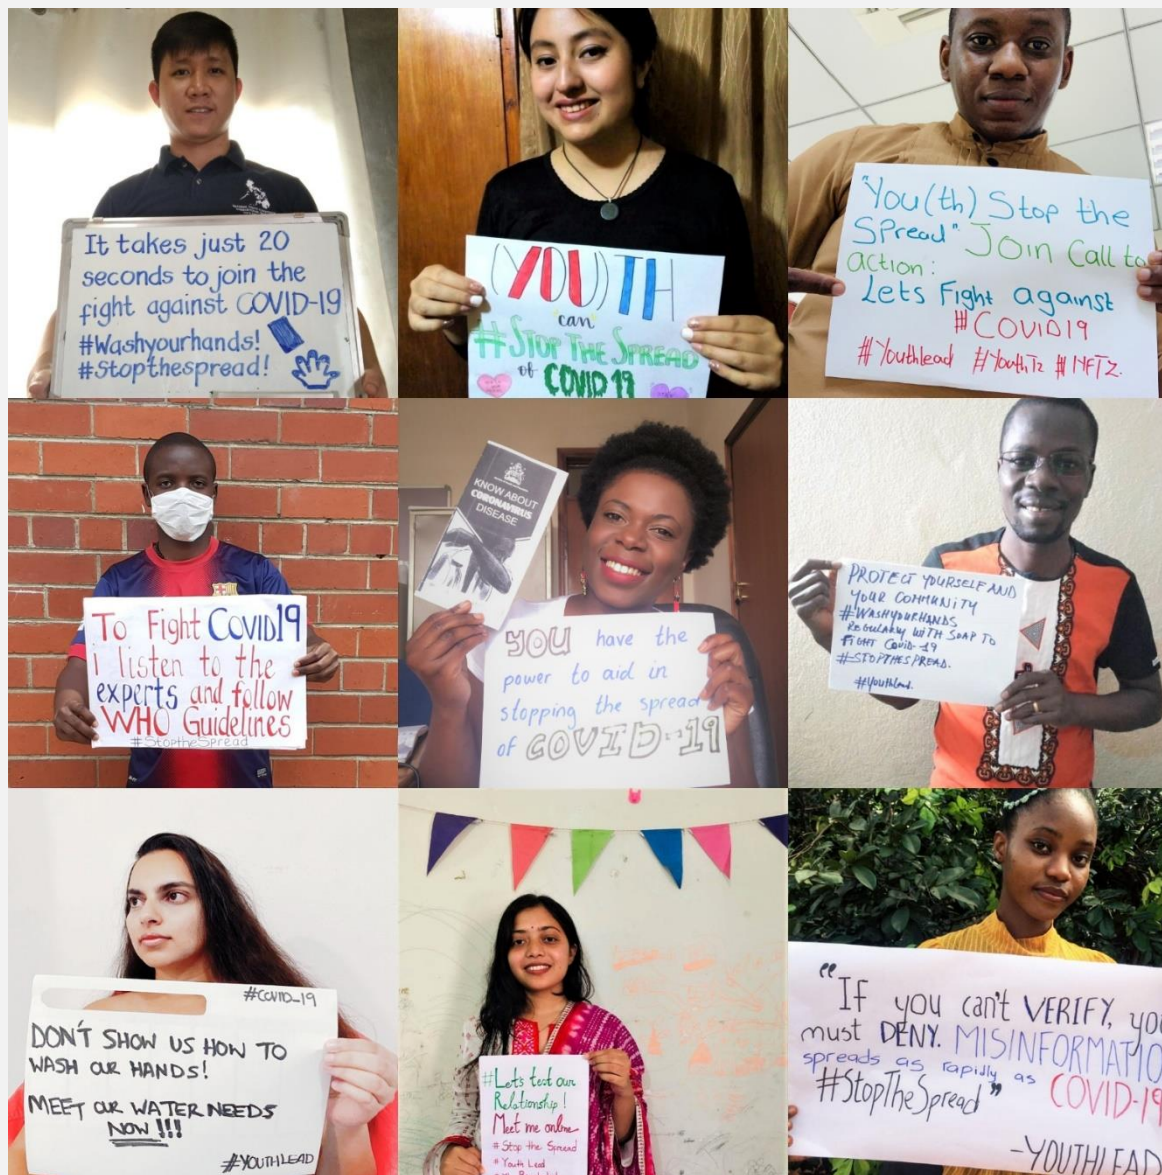 It takes just 20
seconds to join the
fight against COVID-19
#Washyourhands!
#Stopthespread!
(YOU)TH
can
#STOP THE SPREAD
of COVID 19
"You(th) Stop the
Spread" Join Call to
action:
Lets Fight against
#COVID19
#Youthlead #YouthTz
To Fight COVID19
i listen to the
experts and follow
WHO Guidelines
#StoptheSpread
KNOW ABOUT
CORONAVIRUS
DISEASE
YOU have the
power to aid in
stopping the spread
of COVID-19
PROTECT YOURSELF AND
YOUR COMMUNITY
#WASHYOURHANDS
REGULARLY WITH SOAP TO
FIGHT Covid-19
#STOPTHESPREAD.
#Youthlead.
#COVID_19
DON'T SHOW US HOW TO
WASH OUR HANDS!
MEET OUR WATER NEEDS
NOW!!!
#YOUTHLEAD
#Let's test our
Relationship!
Meet me online
# Stop the Spread
# Youth Lead
"If you can't VERIFY, you
must DENY. MISINFORMATIO
spreads as rapidly as COVID-19
#StopTheSpread"
-YOUTHLEAD